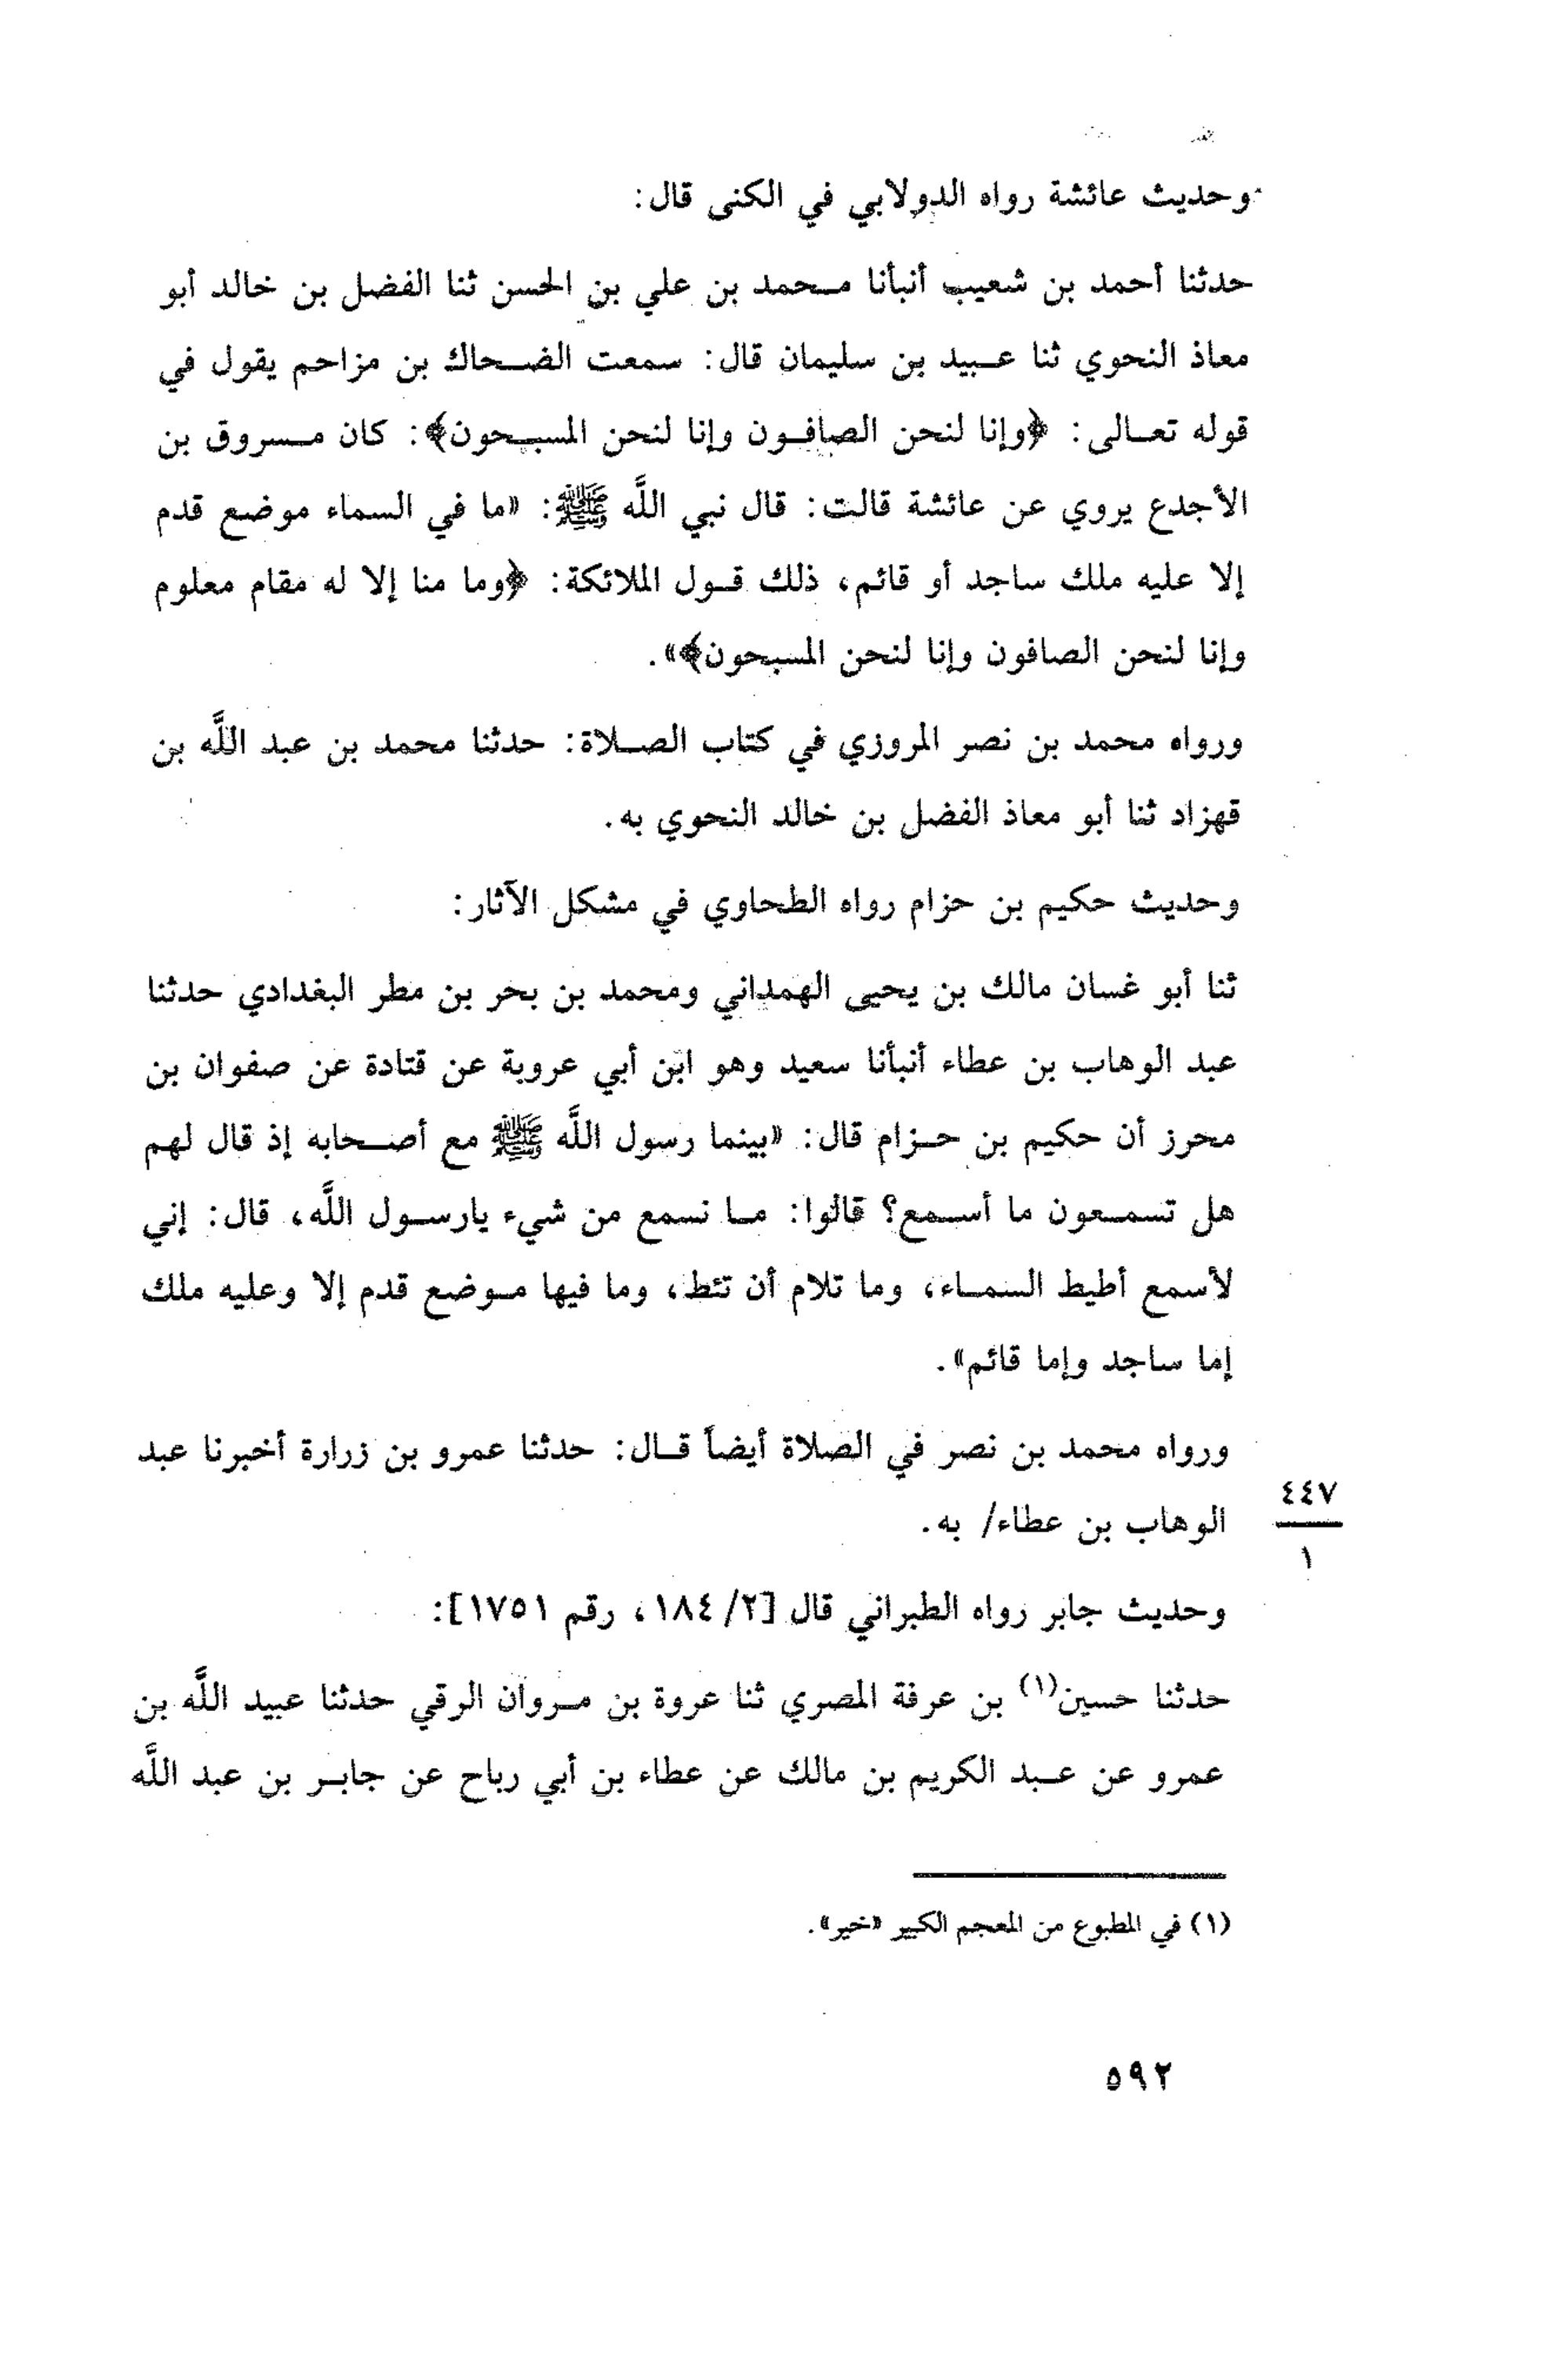 وحديث عائشة رواه الدولابي في الكنى قال:
حدثنا أحمد بن شعيب أنبأنا محمد بن علي بن الحسن ثنا الفضل بن خالد أبو
معاذ النحوي ثنا عبيد بن سليمان قال: سمعت الضحاك بن مزاحم يقول في
قوله تعالى: ﴿وإنا لنحن الصافون وإنا لنحن المسبحون﴾: كان مسروق بن
الأجدع يروي عن عائشة قالت: قال نبي اللَّه ﷺ: «ما في السماء موضع قدم
إلا عليه ملك ساجد أو قائم، ذلك قول الملائكة: ﴿وما منا إلا له مقام معلوم
وإنا لنحن الصافون وإنا لنحن المسبحون﴾».
ورواه محمد بن نصر المروزي في كتاب الصلاة: حدثنا محمد بن عبد اللَّه بن
قهزاد ثنا أبو معاذ الفضل بن خالد النحوي به.
وحديث حكيم بن حزام رواه الطحاوي في مشكل الآثار:
ثنا أبو غسان مالك بن يحيى الهمداني ومحمد بن بحر بن مطر البغدادي حدثنا
عبد الوهاب بن عطاء أنبأنا سعيد وهو ابن أبي عروبة عن قتادة عن صفوان بن
محرز أن حكيم بن حزام قال: «بينما رسول اللَّه ﷺ مع أصحابه إذ قال لهم
هل تسمعون ما أسمع؟ قالوا: ما نسمع من شيء يارسول اللَّه، قال: إني
لأسمع أطيط السماء، وما تلام أن تئط، وما فيها موضع قدم إلا وعليه ملك
إما ساجد وإما قائم».
ورواه محمد بن نصر في الصلاة أيضاً قال: حدثنا عمرو بن زرارة أخبرنا عبد
الوهاب بن عطاء/ به.
٤٤٧
١
وحديث جابر رواه الطبراني قال [٢/ ١٨٤، رقم ١٧٥١]:
حدثنا حسين(١) بن عرفة المصري ثنا عروة بن مروان الرقي حدثنا عبيد اللَّه بن
عمرو عن عبد الكريم بن مالك عن عطاء بن أبي رباح عن جابر بن عبد اللَّه
(١) في المطبوع من المعجم الكبير «خير».
٥٩٢